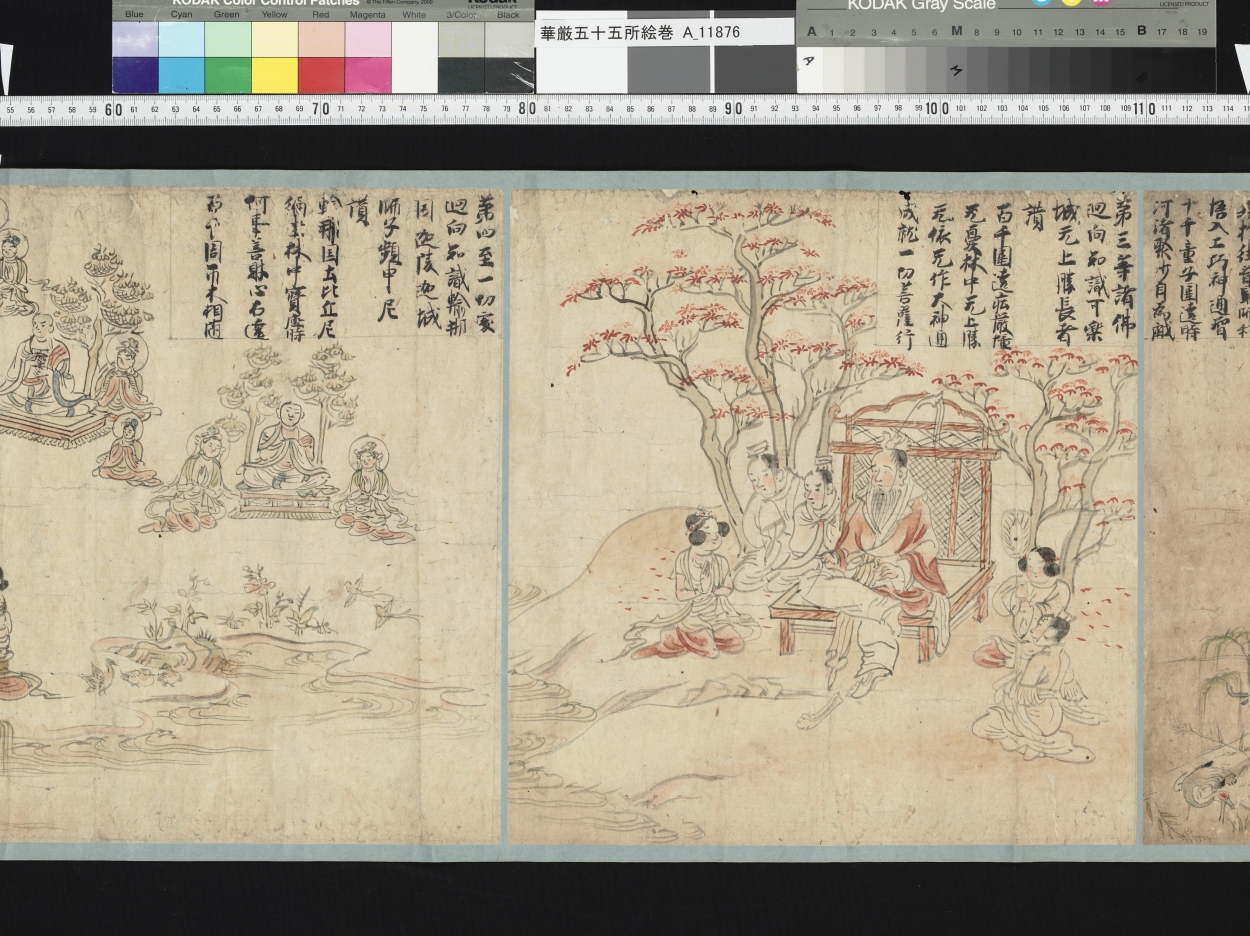 KODAK Color Control Patches
© The Tiffen Company, 2000
Kodak
LICENSED PRODUCT
Blue Cyan Green Yellow Red Magenta White 3/Color Black
華厳五十五所絵巻 A_11876
KODAK Gray Scale
LICENSED PRODUCT
A 1 2 3 4 5 6 M 8 9 10 11 12 13 14 15 B 17 18 19
A
M
B
55 56 57 58 59 60 61 62 63 64 65 66 67 68 69 70 71 72 73 74 75 76 77 78 79 80 81 82 83 84 85 86 87 88 89 90 91 92 93 94 95 96 97 98 99 100 101 102 103 104 105 106 107 108 109 110 111 112 113 114
悟入工巧神通智
十千童子圍遶時
河渚聚沙自為戲
第三等諸佛
迴向知識可樂
城无上勝長者
讃
百千圍遶在嚴幢
无憂林中无上勝
无依无作大神通
成就一切菩薩行
第四至一切處
迴向知識輸那
国迦陵迦城
師子頻申尼
讃
輸那国土比丘尼
林中寶座
善財心右遶
周帀